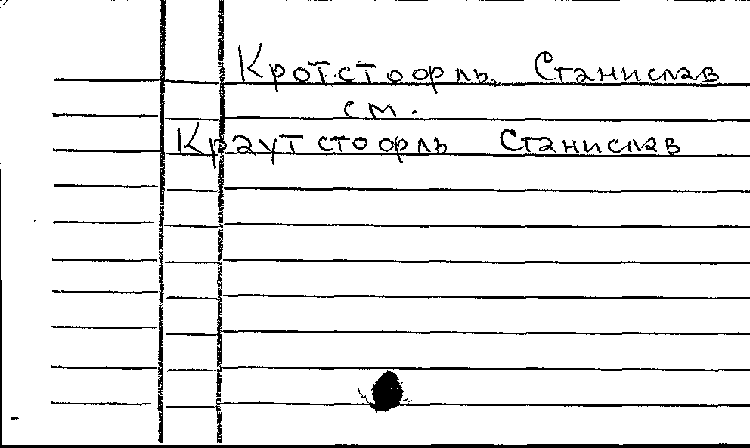 Кротстоорль Станислав
см.
Краутстоорль Станислав